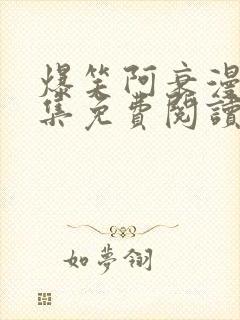 爆笑阿衰漫
集免費閱讀
如夢翎